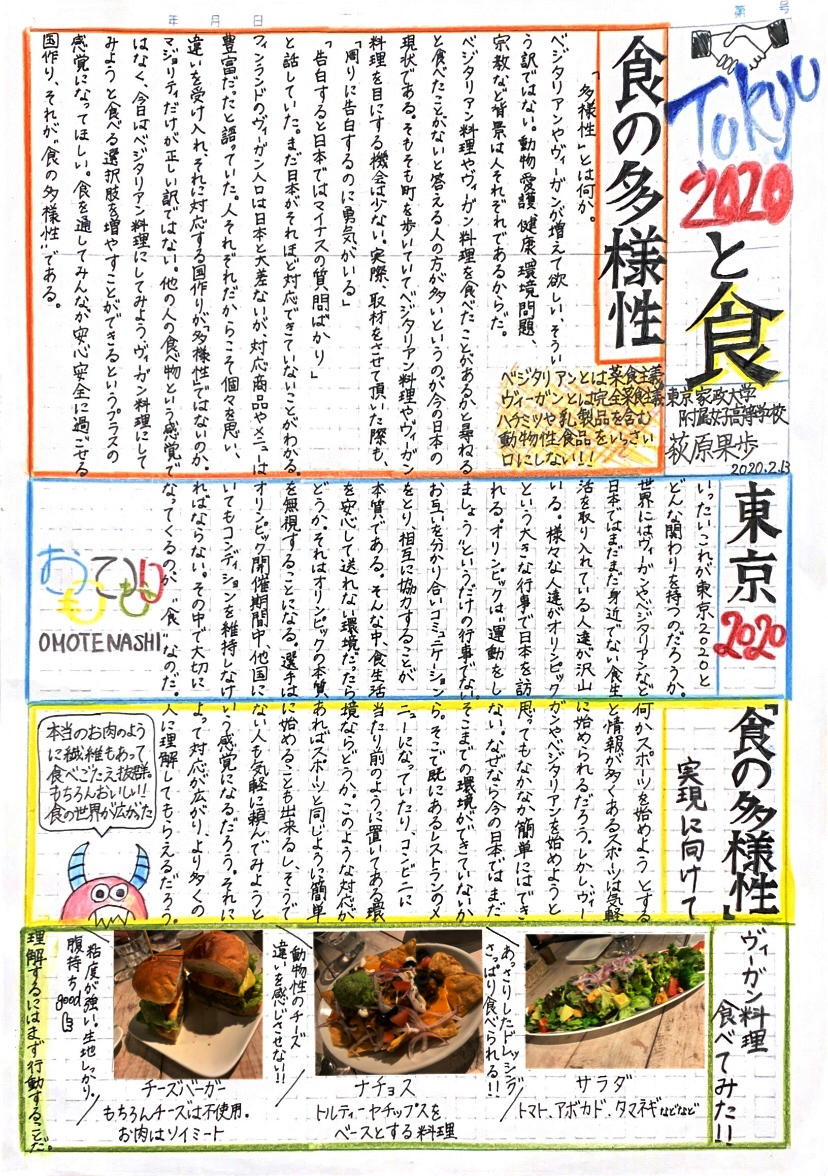 第 号
年 月 日
Tokyo
2020
と食
東京家政大学
附属女子高等学校
萩原果歩
2020.2.13
食の多様性
「多様性」とは何か。
ベジタリアンやヴィーガンが増えて欲しい、そうい
う訳ではない。動物愛護、健康、環境問題、
宗教など背景は人それぞれであるからだ。
ベジタリアン料理やヴィーガン料理を食べたことがあるかと尋ねる
と食べたことがないと答える人の方が多いというのが今の日本の
現状である。そもそも町を歩いていてベジタリアン料理やヴィーガン
料理を目にする機会は少ない。実際、取材をさせて頂いた際も、
「周りに告白するのに勇気がいる」
「告白すると日本ではマイナスの質問ばかり」
と話していた。まだ日本がそれほど対応できていないことがわかる。
フィンランドのヴィーガン人口は日本と大差ないが、対応商品やメニューは
豊富だったと語っていた。人それぞれだからこそ個々を思い、
違いを受け入れ、それに対応する国作りが“多様性”ではないのか。
マジョリティだけが正しい訳ではない。他の人の食べ物という感覚で
はなく、今日はベジタリアン料理にしてみよう、ヴィーガン料理にして
みようと食べる選択肢を増やすことができるというプラスの
感覚になってほしい。食を通してみんなが安心安全に過ごせる
国作り、それが“食の多様性”である。
ベジタリアンとは菜食主義
ヴィーガンとは完全菜食主義
ハチミツや乳製品を含む
動物性食品をいっさい
口にしない!!
東京2020
いったいこれが東京2020と
どんな関わりを持つのだろうか。
世界にはヴィーガンやベジタリアンなど
日本ではまだまだ身近でない食生
活を取り入れている人達が沢山
いる。様々な人達がオリンピック
という大きな行事で日本を訪
れる。オリンピックは“運動をし
ましょう”というだけの行事でない。
お互いを分かり合いコミュニケーション
をとり、相互に協力することが
本質である。そんな中、食生活
を安心して送れない環境だったら
どうか。それはオリンピックの本質
を無視することになる。選手は
オリンピック開催期間中、他国に
いてもコンディションを維持しなけ
ればならない。その中で大切に
なってくるのが“食”なのだ。
おもてなし
OMOTENASHI
『食の多様性』
実現に向けて
何かスポーツを始めようとする
と情報が多くあるスポーツは気軽
に始められるだろう。しかし、ヴィー
ガンやベジタリアンを始めようと
思ってもなかなか簡単にはでき
ない。なぜなら今の日本ではまだ
そこまでの環境ができていないか
ら。そこで既にあるレストランのメ
ニューになっていたり、コンビニに
当たり前のように置いてある環
境ならどうか。このような対応が
あればスポーツと同じように簡単
に始めることも出来るし、そうで
ない人も気軽に頼んでみようと
いう感覚になるだろう。それに
よって対応が広がり、より多くの
人に理解してもらえるだろう。
本当のお肉のよう
に繊維もあって
食べごたえ抜群。
もちろんおいしい!!
食の世界が広がった
ヴィーガン料理
食べてみた!!
サラダ
トマト、アボカド、タマネギなどなど
あっさりしたドレッシング
さっぱり食べられる!!
ナチョス
トルティーヤチップスを
ベースとする料理
動物性のチーズ
違いを感じさせない!!
チーズバーガー
もちろんチーズは不使用。
お肉はソイミート
粘度が強い。生地しっかり。
腹持ちgood
理解するにはまず行動することだ。